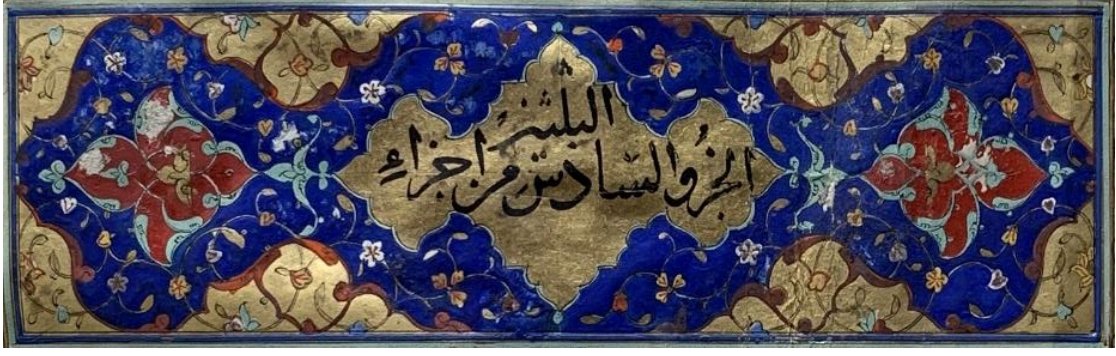 الجزؤ السادس من اجزاء
الثلثين